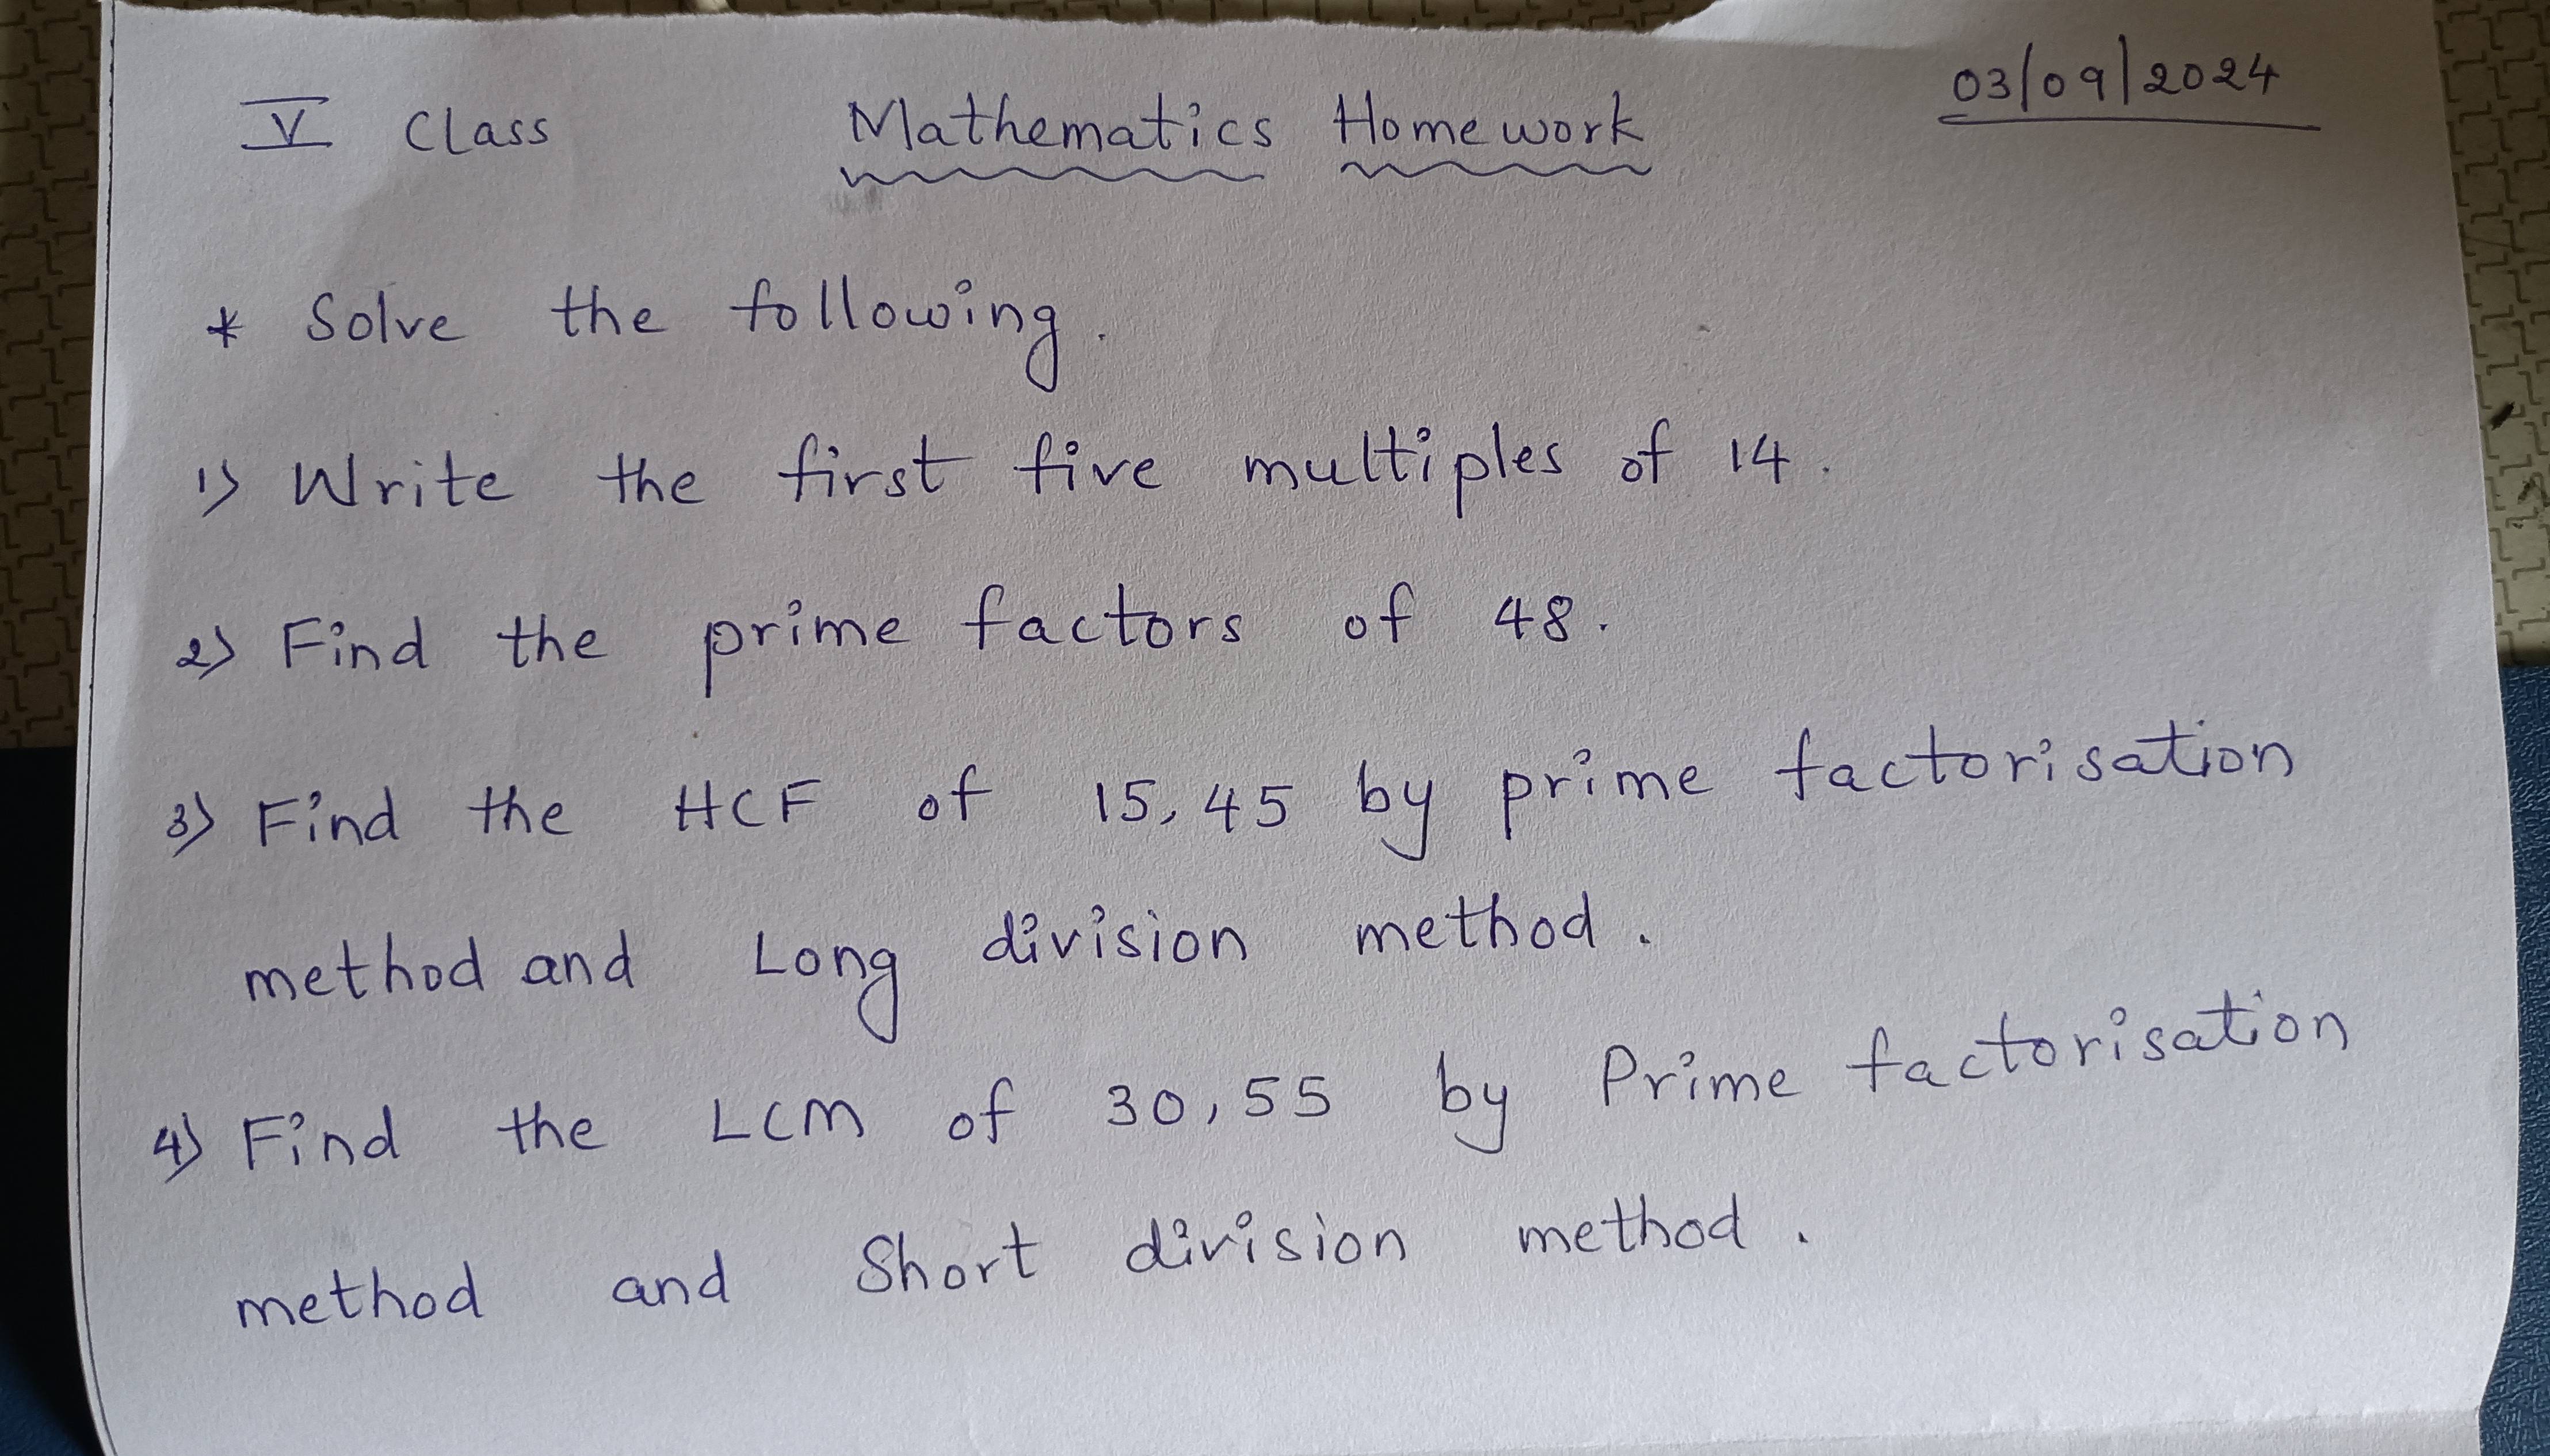 V Class Mathematics Homework 03/09/2024
* Solve the following.
1) Write the first five multiples of 14.
2) Find the prime factors of 48.
3) Find the HCF of 15, 45 by prime factorisation
method and Long division method.
4) Find the LCM of 30, 55 by Prime factorisation
method and Short division method.